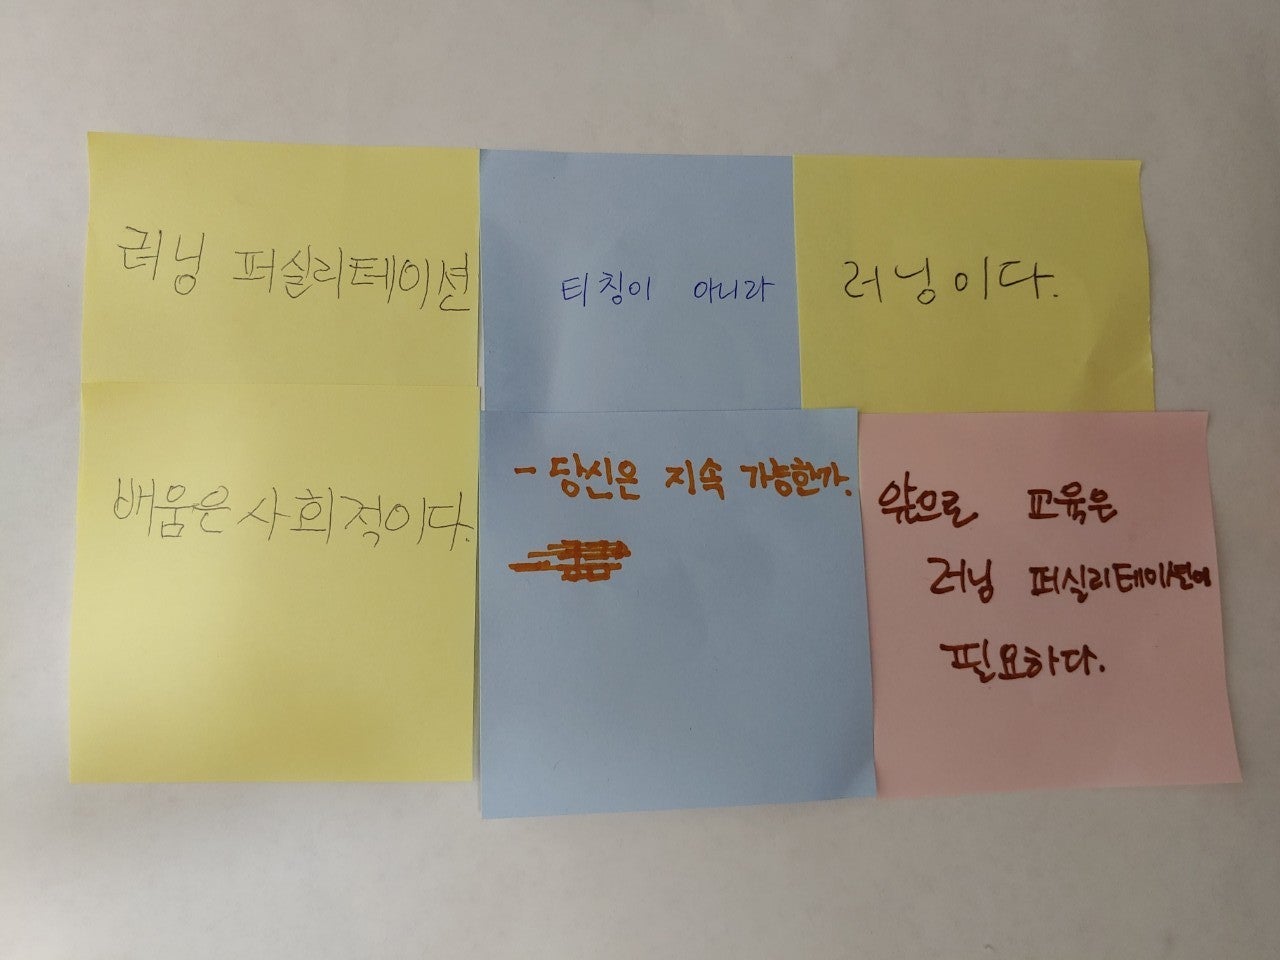 러닝 퍼실리테이션
티칭이 아니라
러닝이다.
배움은 사회적이다.
- 당신은 지속 가능한가.
앞으로 교육은
러닝 퍼실리테이션이
필요하다.